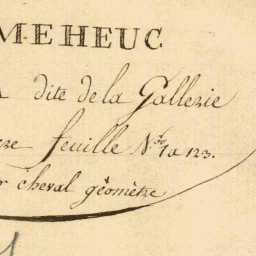 M.EHEUC
dite de la Gallerie
feuille N.os 1 a 123.
r cheval géomètre